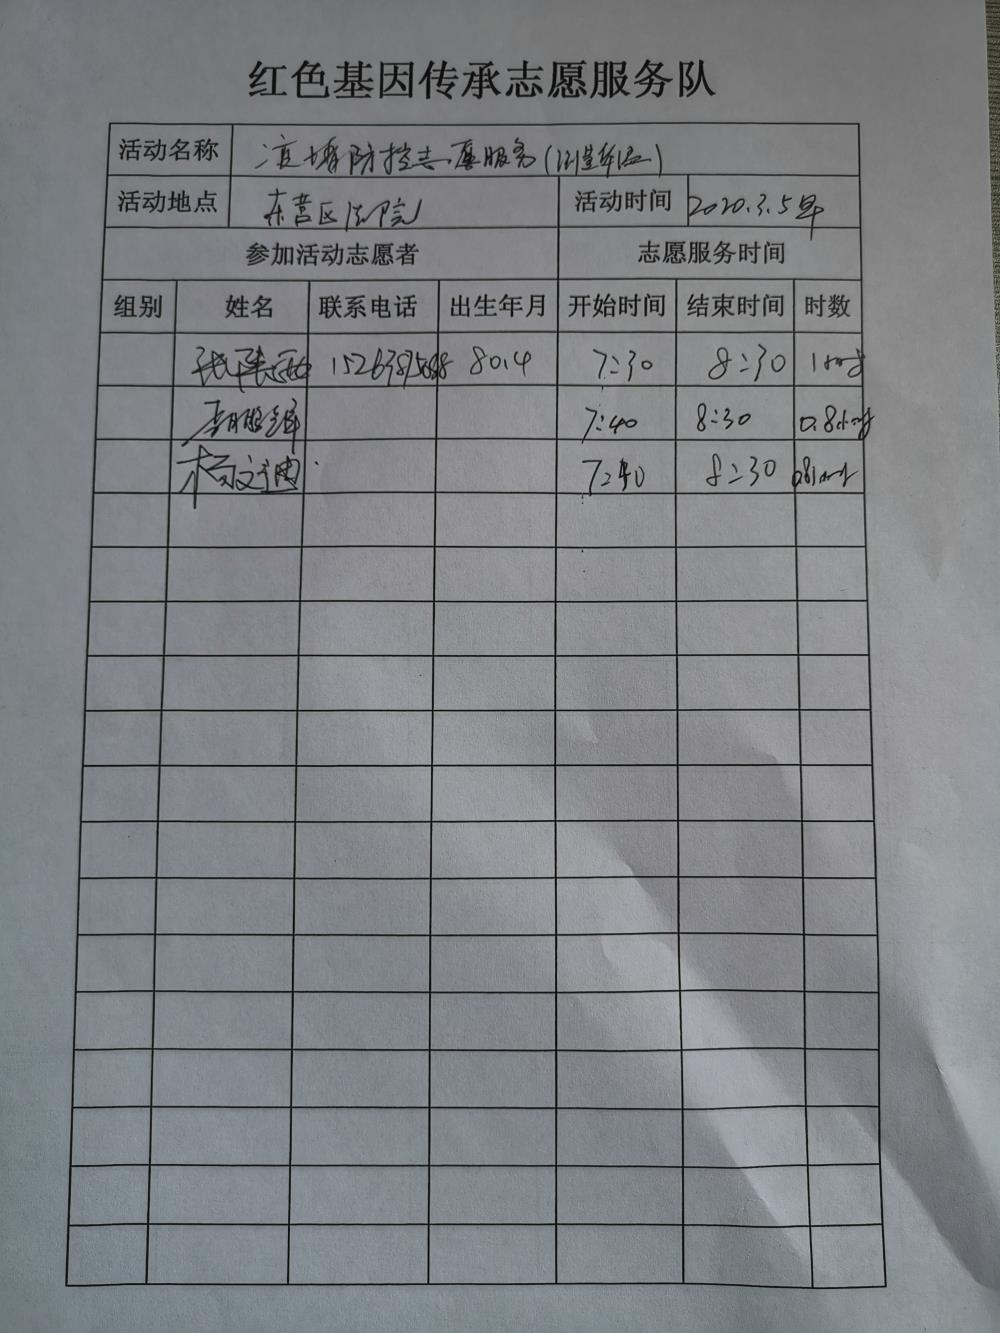 红色基因传承志愿服务队
活动名称 疫情防控志愿服务(测量体温)
活动地点 东营区法院 活动时间 2020.3.5早
参加活动志愿者 志愿服务时间
组别 姓名 联系电话 出生年月 开始时间 结束时间 时数
80.4 7:30 8:30 1小时
7:40 8:30 0.8小时
7:40 8:30 0.8小时